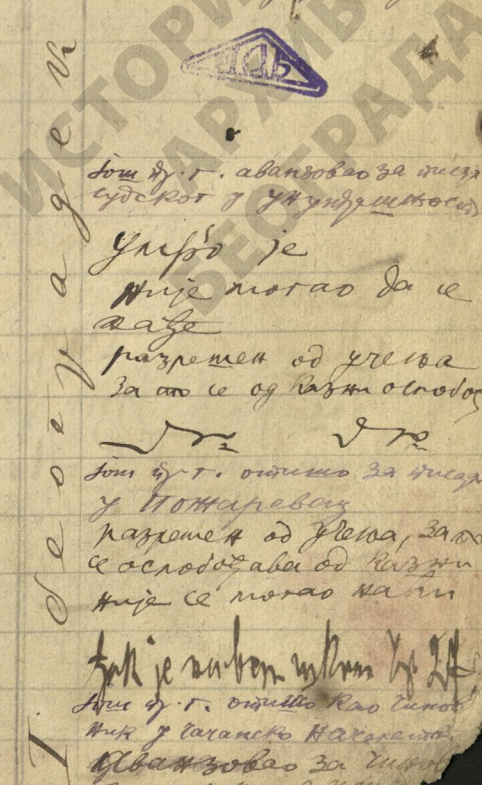 ИСТОРИ
АРХИВ
БЕОГРАДА
ИАБ
још пр. г. аванзовао за писар
судског у унутрашњост
Умро је
није могао да се
нађе
разрешен од учења
За то се од казни ослобођ
још пр. г. отишо за писар
у Пожаревац
разрешен од учења, за то
се ослобођава од казни
није се могао наћи
је
још пр. г. отишо као чинов
ник у чачанско начелство
Аванзовао за чинов